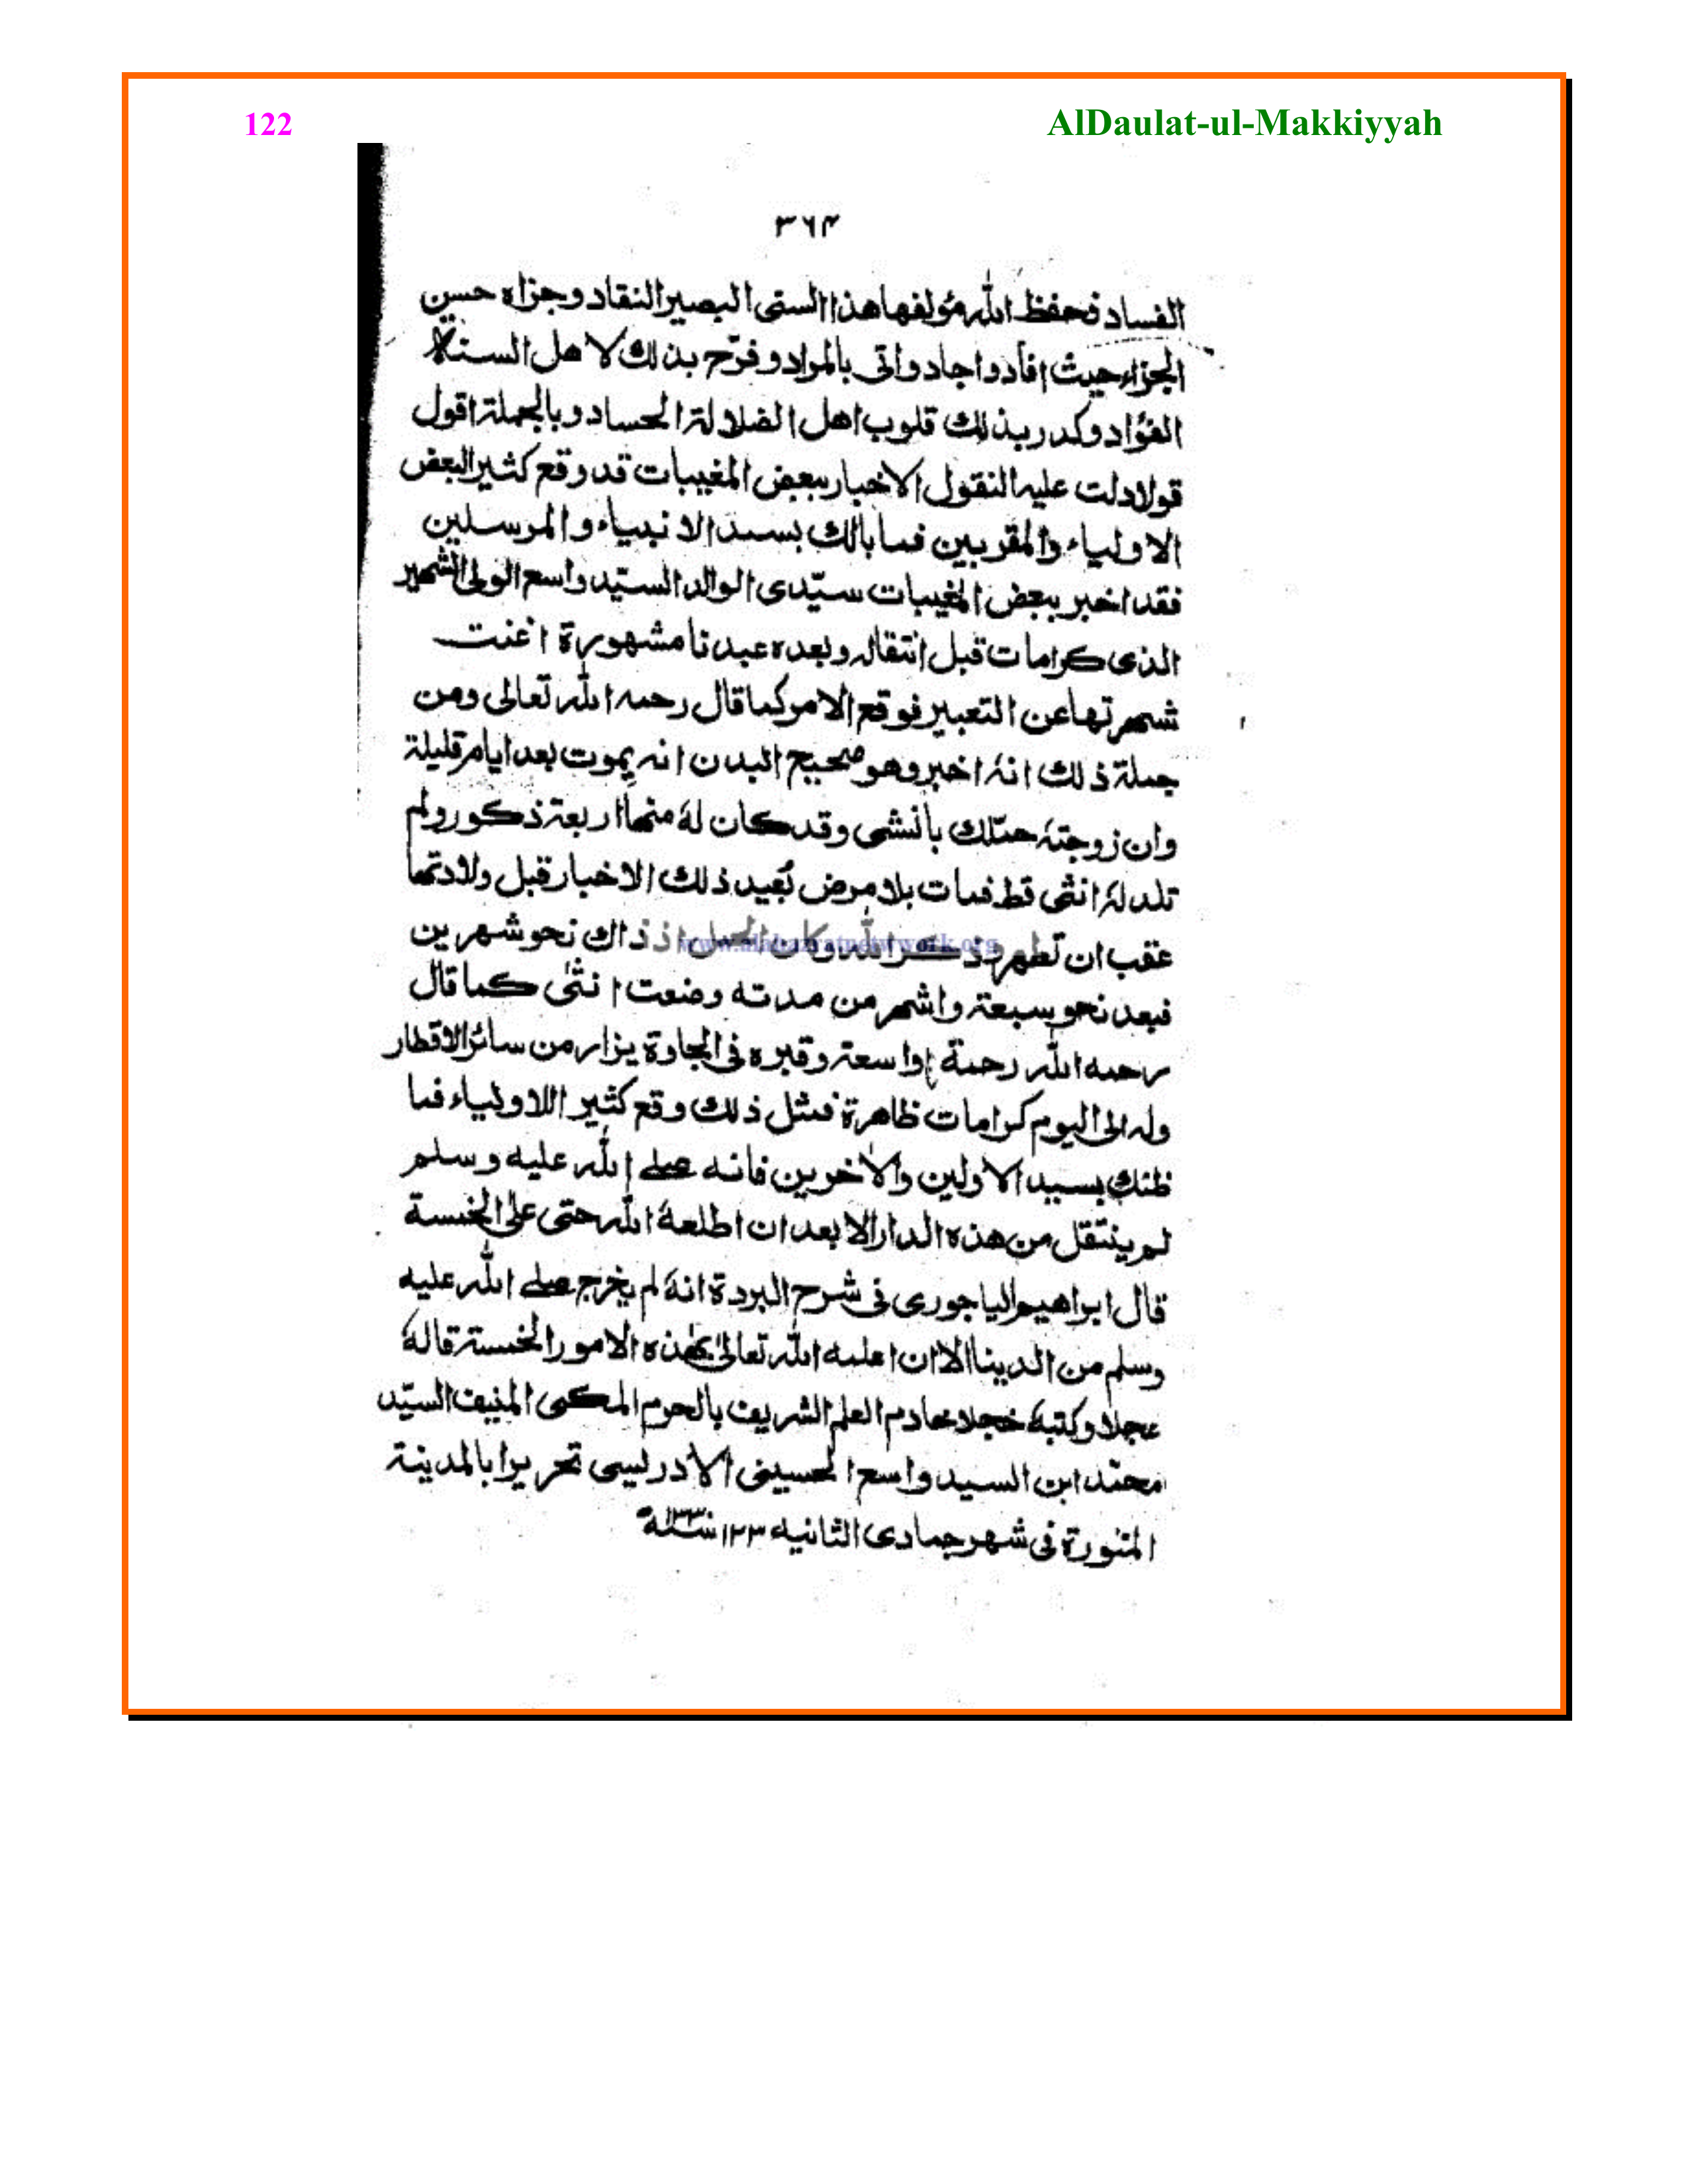 122 AlDaulat-ul-Makkiyyah
۳۶۴
الفساد فحفظ الله مؤلفها هذا السنی البصیر النقاد و جزاه حسن
الجزاء حیث افأد و اجاد و اتی بالمراد و فرّح بذلك لاهل السنة
الفؤاد وکدر بذلك قلوب اهل الضلالة الحساد و بالجملة اقول
قولا دلت علیه النقول الاخبار ببعض المغیبات قد وقع کثیر البعض
الاولیاء و المقربین فما بالك بسید الانبیاء و المرسلین
فقد اخبر ببعض المغیبات سیّدی الوالد السیّد واسع الولی الشهیر
الذی کرامات قبل انتقاله وبعده عبدنا مشهورة اغنت
شهرتها عن التعبیر فوقع الامر کما قال رحمه الله تعالی ومن
جملة ذلك انهٗ اخبر وهو صحیح البدن انه یموت بعد ایام قلیلة
وان زوجتهٗ حملك بانثی وقد کان لهٗ منها اربعة ذکور ولم
تلد لهٗ انثی قط فمات بلا مرض بُعید ذلك الاخبار قبل ولادتها
عقب ان تطهر وذکر الله وکان الحمل اذ ذاك نحو شهرین
فبعد نحو سبعة واشهر من مدته وضعت انثٰی کما قال
رحمه الله رحمة واسعة وقبره فی الجاوة یزار من سائر الاقطار
وله الی الیوم کرامات ظاهرة فمثل ذلك وقع کثیر اللاولیاء فما
ظنك بسید الاولین والاٰخرین فانه صلے الله علیه وسلم
لم ینتقل من هذه الدار الا بعد ان اطلعهٗ الله حتی علی الخمسة
قال ابراهیم الیاجوری فی شرح البردة انهٗ لم یخرج صلے الله علیه
وسلم من الدینا الا ان اعلمه الله تعالیٰ بهٰذه الامور الخمسة قالهٗ
عجلا وکتبهٗ خجلا خادم العلم الشریف بالحرم المکی المنیف السیّد
محمّد ابن السید واسع الحسینی الادریسی تحریرا بالمدینة
المنورة فی شهر جمادی الثانیه
www.alahazratnetwork.org